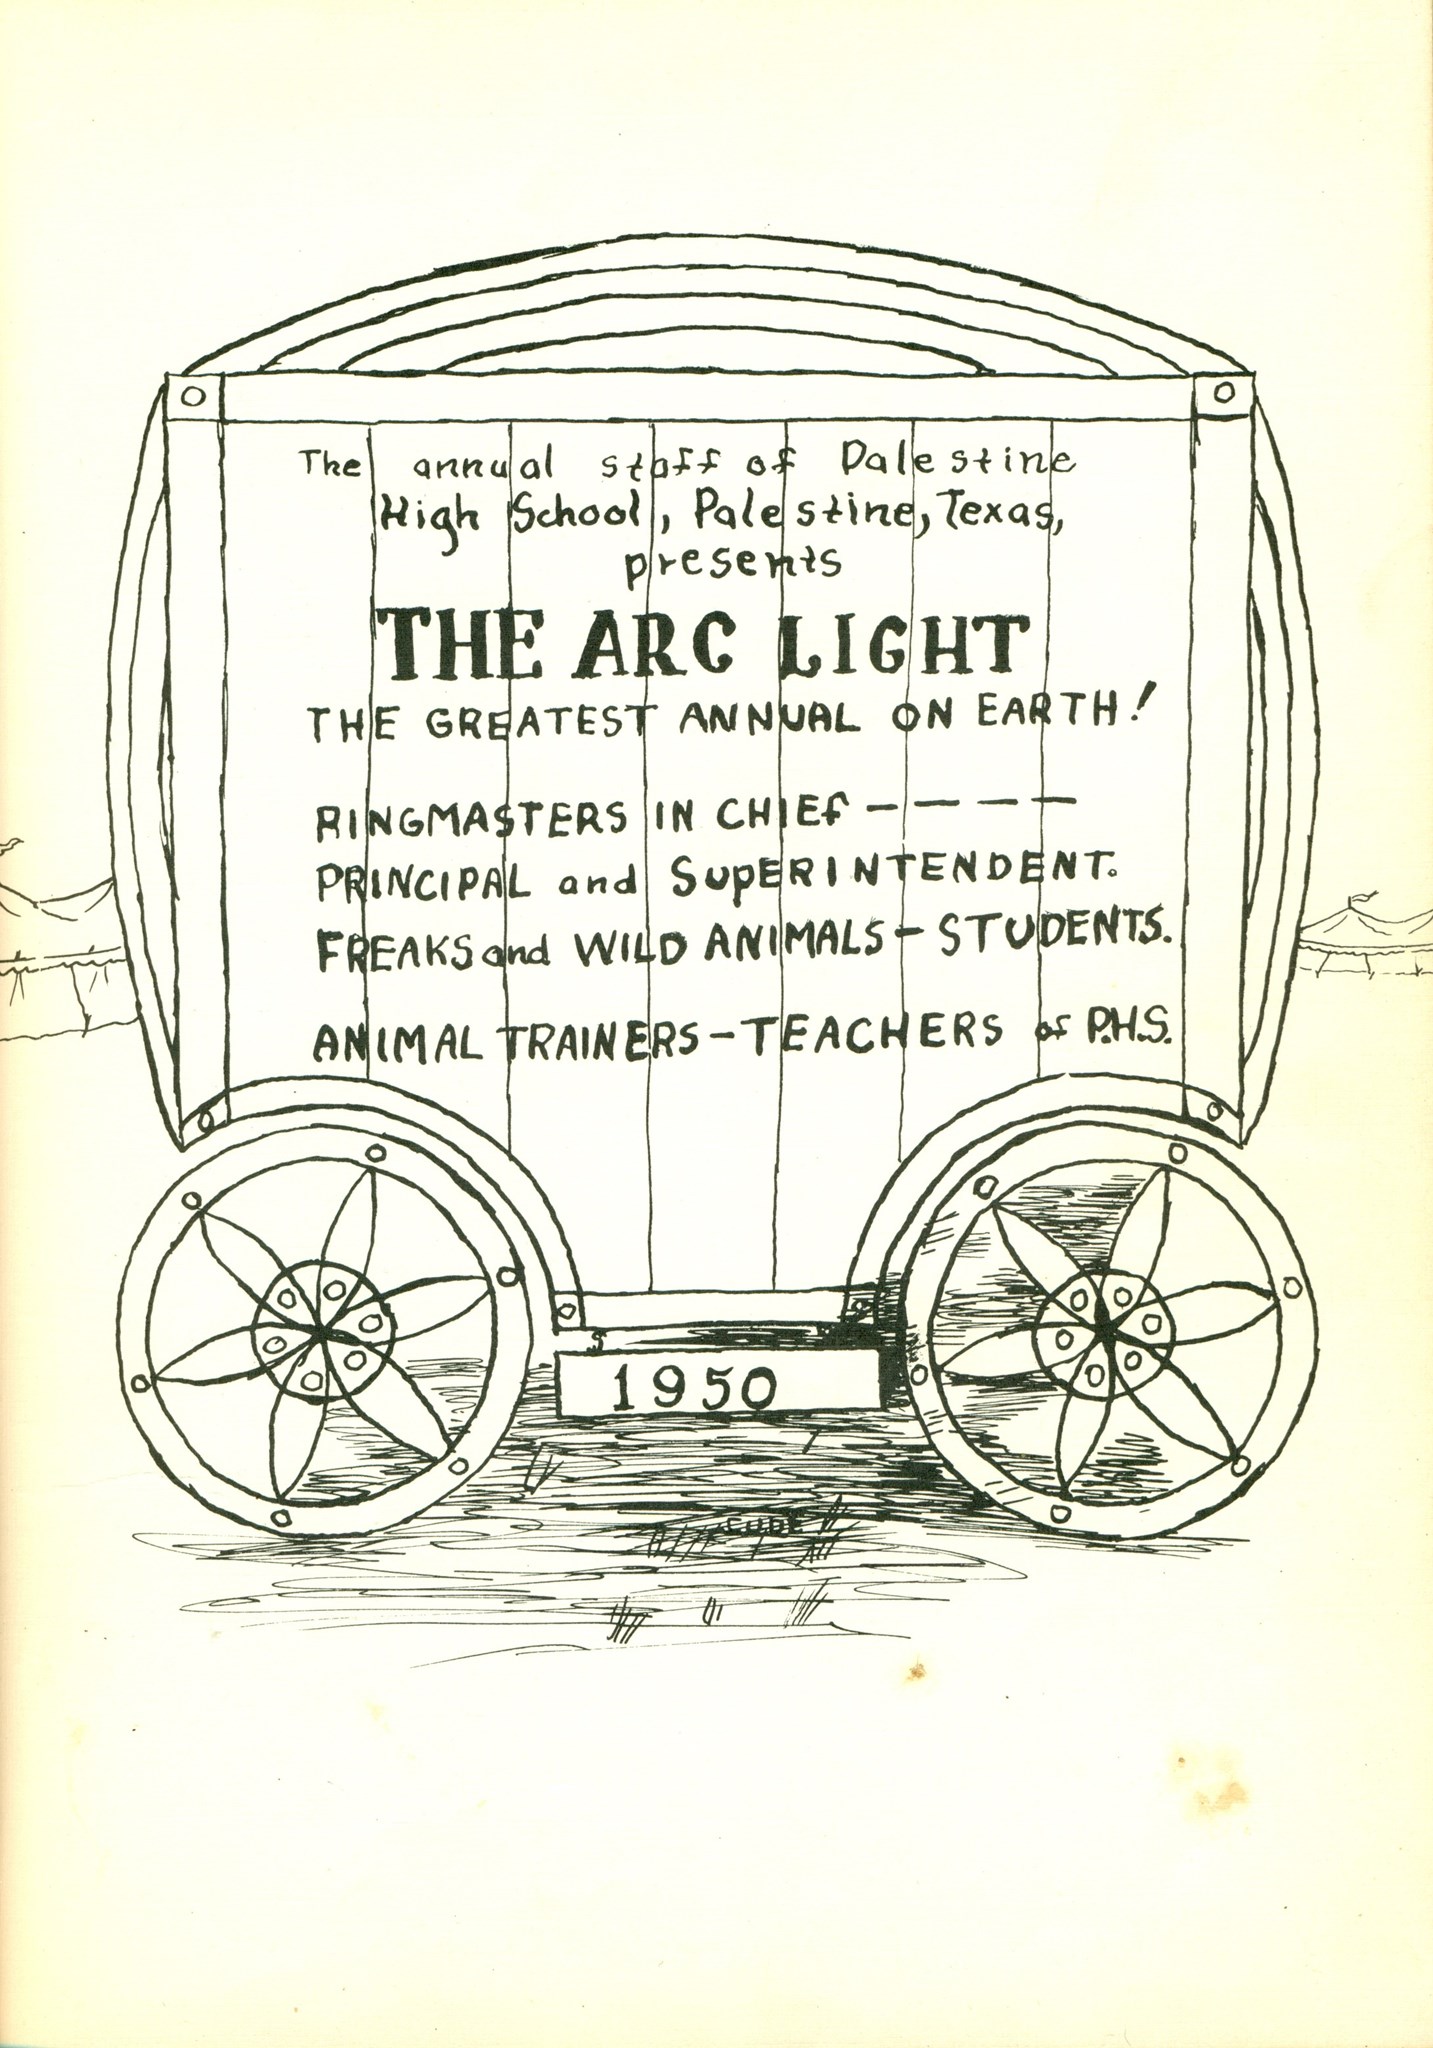 The annual staff of Palestine
High School, Palestine, Texas,
presents
THE ARC LIGHT
THE GREATEST ANNUAL ON EARTH!
RINGMASTERS IN CHIEf – – – –
PRINCIPAL and SupERINTENDENT.
FREAKS and WILD ANIMALS – STUDENTS.
ANIMAL TRAINERS – TEACHERS of P.H.S.
1950